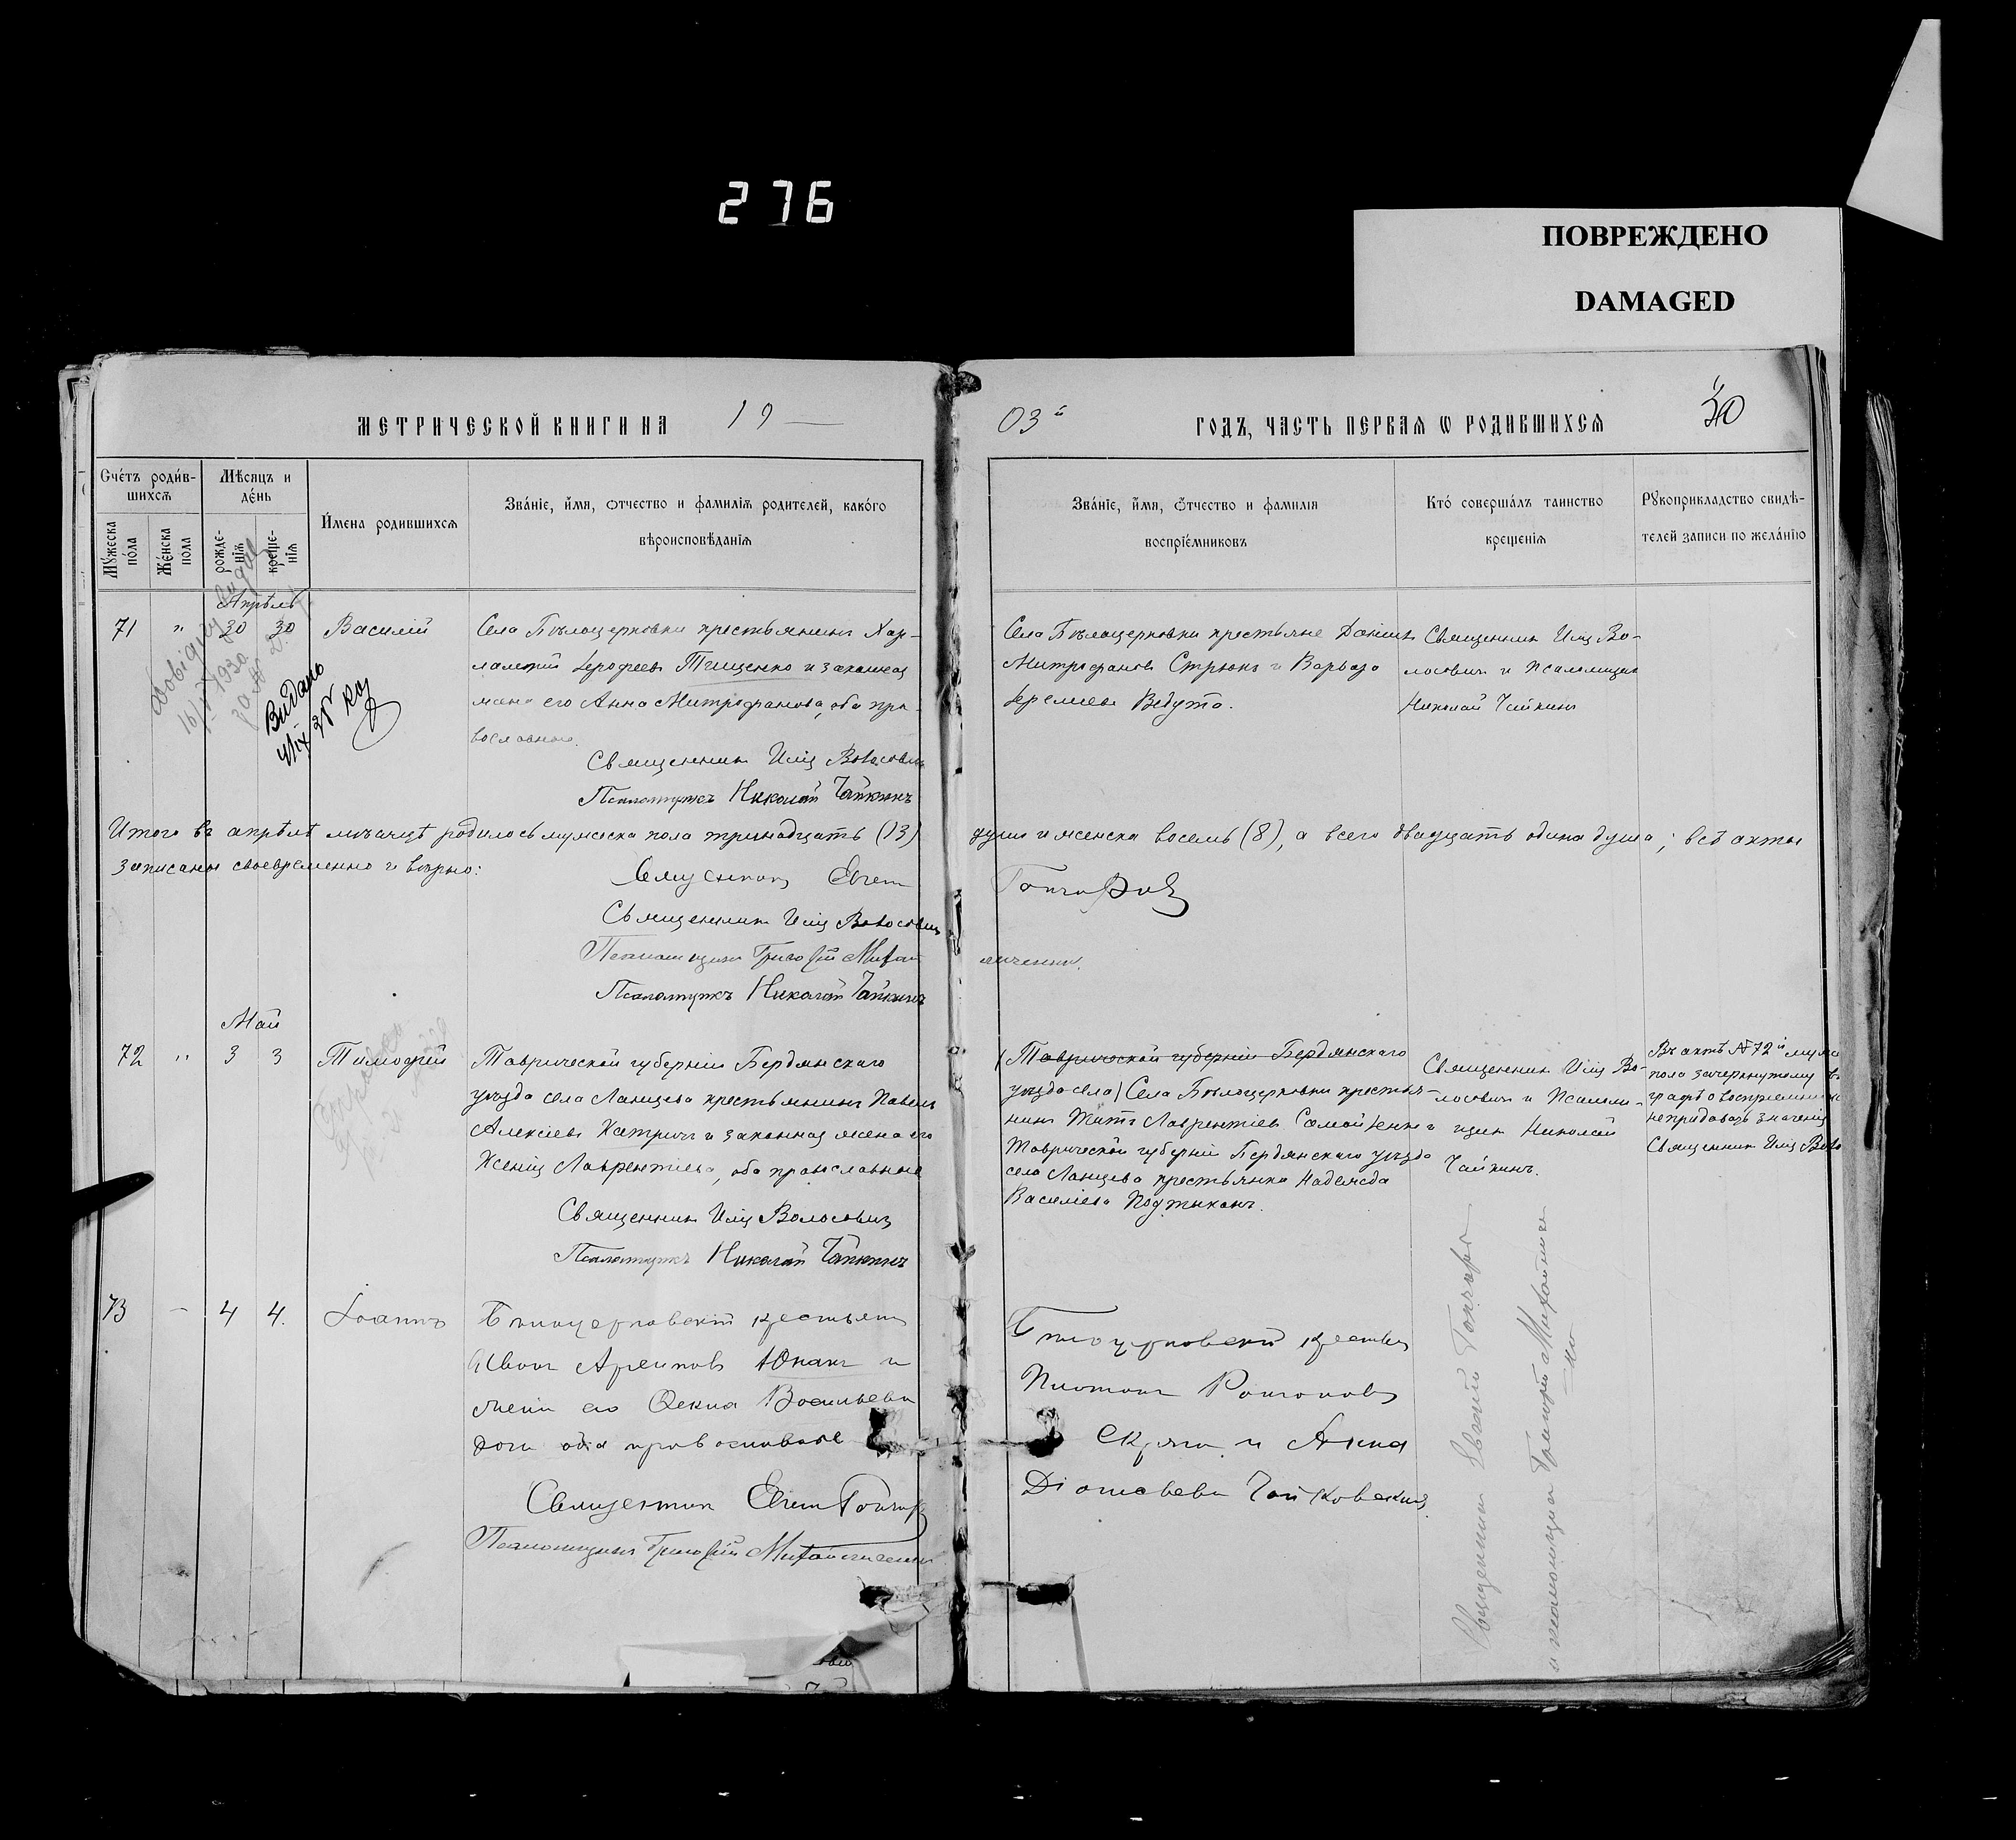 276
ПОВРЕЖДЕНО
DAMAGED
МЕТРИЧЕСКОЙ КНИГИ НА 19
03й ГОДЪ, ЧАСТЬ ПЕРВАЯ Ѡ РОДИВШИХСЯ
30
Счетъ родив-
шихся
Мужеска
пола
Женска
пола
Мѣсяцъ и
день
рожде-
нія
креще-
нія
Имена родившихся
Званіе, имя, отчество и фамилія родителей, какого
вѣроисповѣданія
Званіе, имя, отчество и фамилія
воспріемниковъ
Кто совершалъ таинство
крещенія
Рукоприкладство свидѣ-
телей записи по желанію
Апрѣль
71 " 30 30 Василій
Видано
Села Бѣлоцерковки крестьянинъ Хар-
лампій Іерофеевъ Тищенко и законная
жена его Анна Митрофанова, оба пра-
вославные.
Священникъ Илія Волосовичъ
Псаломщикъ Николай Чайкинъ
Села Бѣлоцерковки крестьяне Даніилъ
Митрофановъ Стрюкъ и Варвара
Іереміева Ведута.
Священникъ Илія Во-
лосовичъ и Псаломщикъ
Николай Чайкинъ
Итого въ апрѣлѣ мѣсяцѣ родилось мужеска пола тринадцать (13)
душъ и женска восемь (8), а всего двадцать одна душа; всѣ акты
записаны своевременно и вѣрно:
Священникъ Евген
Гончаровъ
Священникъ Илія Волосовичъ
Псаломщикъ Григорій Михай
личенко.
Псаломщикъ Николай Чайкинъ
Май
72 " 3 3 Тимофей
Таврической губерніи Бердянскаго
уѣзда села Ланцева крестьянинъ Павелъ
Алексіевъ Хатричъ и законная жена его
Ксенія Лаврентіева, оба православные
Священникъ Илія Волосовичъ
Псаломщикъ Николай Чайкинъ
(Таврической губерніи Бердянскаго
уѣзда села) Села Бѣлоцерковки крестья-
нинъ Титъ Лаврентіевъ Самойленко и
Таврической губерніи Бердянскаго уѣзда
села Ланцева крестьянка Надежда
Василіева
Священникъ Илія Во-
лосовичъ и Псалом-
щикъ Николай
Чайкинъ.
Въ актѣ №72й муж
пола зачеркнутому въ
графѣ о воспріемник
непридавать значенія
Священникъ Илія Воло
73 - 4 4. Іоаннъ
Бѣлоцерковскій крестьян
Иванъ Архиповъ Юнакъ и
жена его Ѳекла Васильева
оба православные
Священникъ Евген Гончар
Псаломщикъ Григорій Михайличенко
Бѣлоцерковскій крестья
Платонъ
и Анна
Чайковская
Священникъ Евгеній Гончаръ
и псаломщикъ Григорій Михайличен
ко